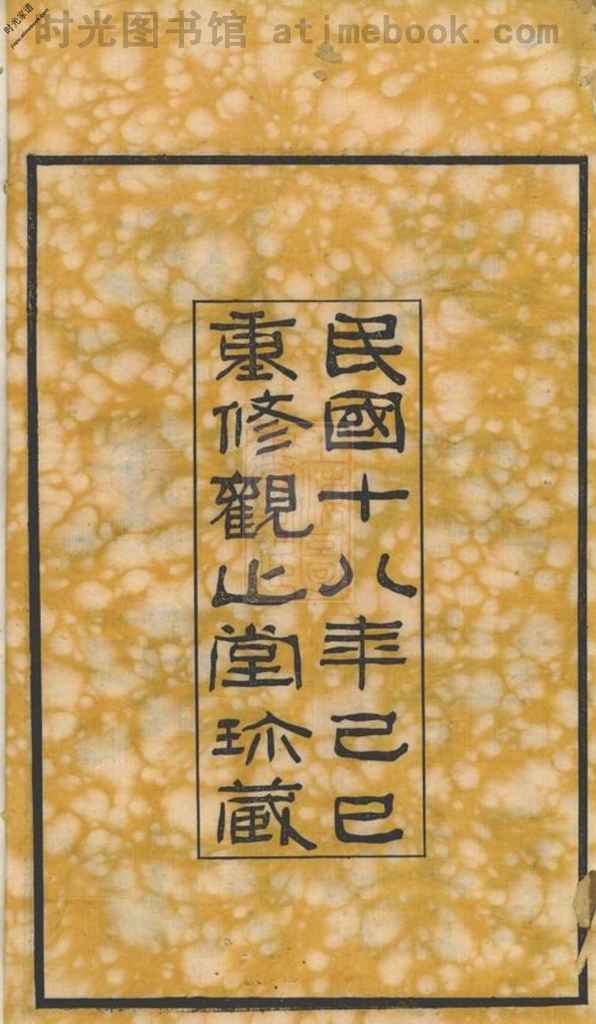 时光图书馆 atimebook.com
民國十八年己巳
重修觀止堂珎藏